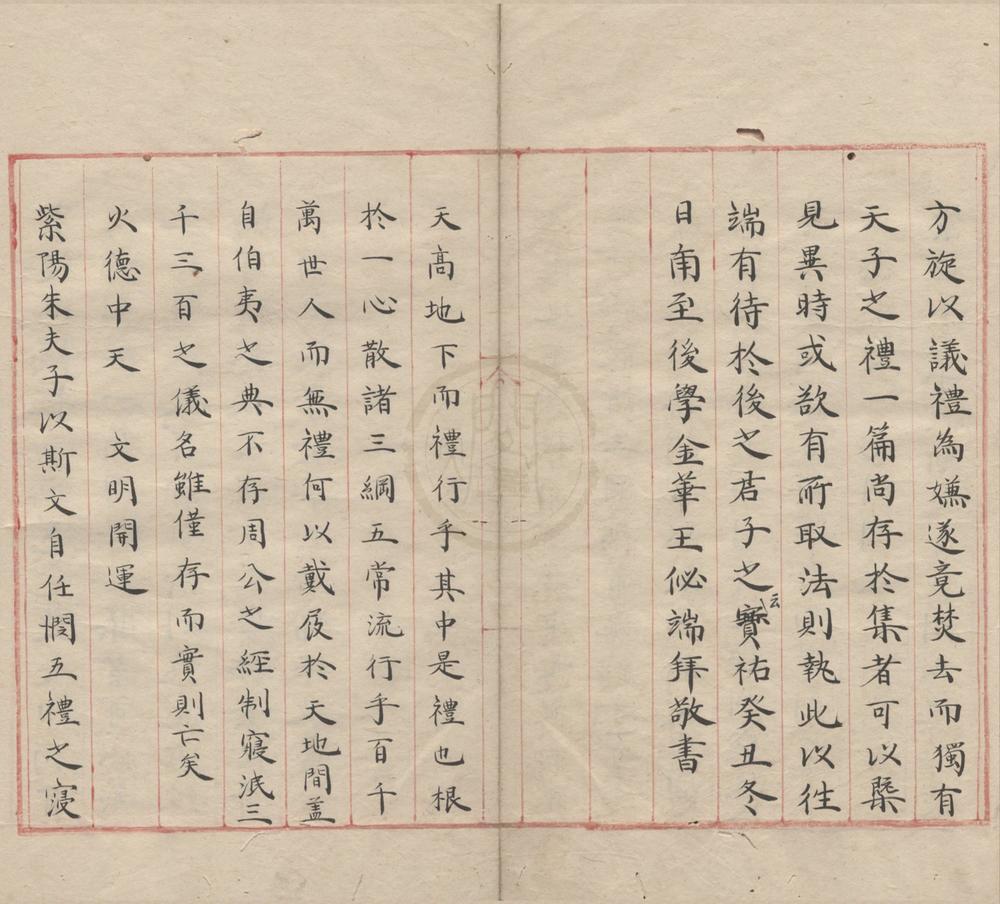 方旋以議禮為嫌遂竟焚去而獨有
天子之禮一篇尚存於集者可以槩
見異時或欲有所取法則執此以徃
端有待於後之君子云寶祐癸丑冬
日南至後學金華王佖端拜敬書
天高地下而禮行乎其中是禮也根
於一心散諸三綱五常流行乎百千
萬世人而無禮何以戴履於天地間盖
自伯夷之典不存周公之經制寖泯三
千三百之儀名雖僅存而實則亡矣
火德中天 文明開運
紫陽朱夫子以斯文自任憫五禮之寖